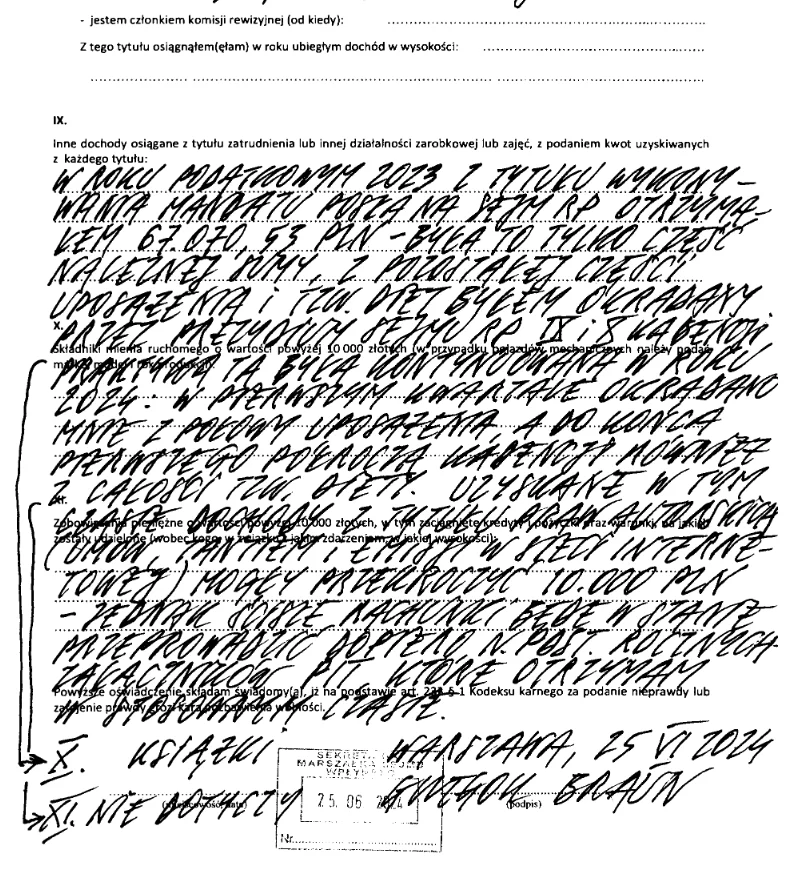 - jestem członkiem komisji rewizyjnej (od kiedy):
Z tego tytułu osiągnąłem(ęłam) w roku ubiegłym dochód w wysokości:
IX.
Inne dochody osiągane z tytułu zatrudnienia lub innej działalności zarobkowej lub zajęć, z podaniem kwot uzyskiwanych
z każdego tytułu:
W ROKU PODATKOWYM 2023 Z TYTUŁU WYKONY-
WANIA MANDATU POSŁA NA SEJM RP OTRZYMA-
ŁEM 67.070,53 PLN - BYŁA TO TYLKO CZĘŚĆ
NALEŻNEJ SUMY, Z POZOSTAŁEJ CZĘŚCI
UPOSAŻENIA I TZW. DIET BYŁEM OKRADANY
X.
PRZEZ PREZYDIUM SEJMU RP IX i X KADENCJI.
Składniki mienia ruchomego o wartości powyżej 10 000 złotych (w przypadku pojazdów mechanicznych należy podać
markę, model i rok produkcji):
PRAKTYKA TA BYŁA KONTYNUOWANA W ROKU
2024. W PIERWSZYM KWARTALE OKRADANO
MNIE Z POŁOWY UPOSAŻENIA, A DO KOŃCA
PIERWSZEGO PÓŁROCZA KADENCJI RÓWNIEŻ
Z CAŁOŚCI TZW. DIETY. UZYSKANE W TYM
XI.
CZASIE DOCHODY Z TYTUŁU PRAW AUTORSKICH
Zobowiązania pieniężne o wartości powyżej 10 000 złotych, w tym zaciągnięte kredyty i pożyczki oraz warunki, na jakich
zostały udzielone (wobec kogo, w związku z jakim zdarzeniem, w jakiej wysokości):
(UMÓW, TANTIEM I EMISJI W SIECI INTERNE-
TOWEJ) MOGŁY PRZEKROCZYĆ 10.000 PLN
- JEDNAK ŚCISŁE RACHUNKI BĘDĘ W STANIE
PRZEPROWADZIĆ DOPIERO N. POST. ROCZNYCH
ZAŁĄCZNIKÓW PIT, KTÓRE OTRZYMAM
Powyższe oświadczenie składam świadomy(a), iż na podstawie art. 233 § 1 Kodeksu karnego za podanie nieprawdy lub
zatajenie prawdy grozi kara pozbawienia wolności.
W STOSOWNYM CZASIE.
X. KSIĄŻKI. WARSZAWA, 25 VI 2024
MARSZAŁKA SEJMU
WPŁYNĘŁO
XI. NIE DOTYCZY GRZEGORZ BRAUN
(miejscowość, data) 25. 06 2024 (podpis)
Nr